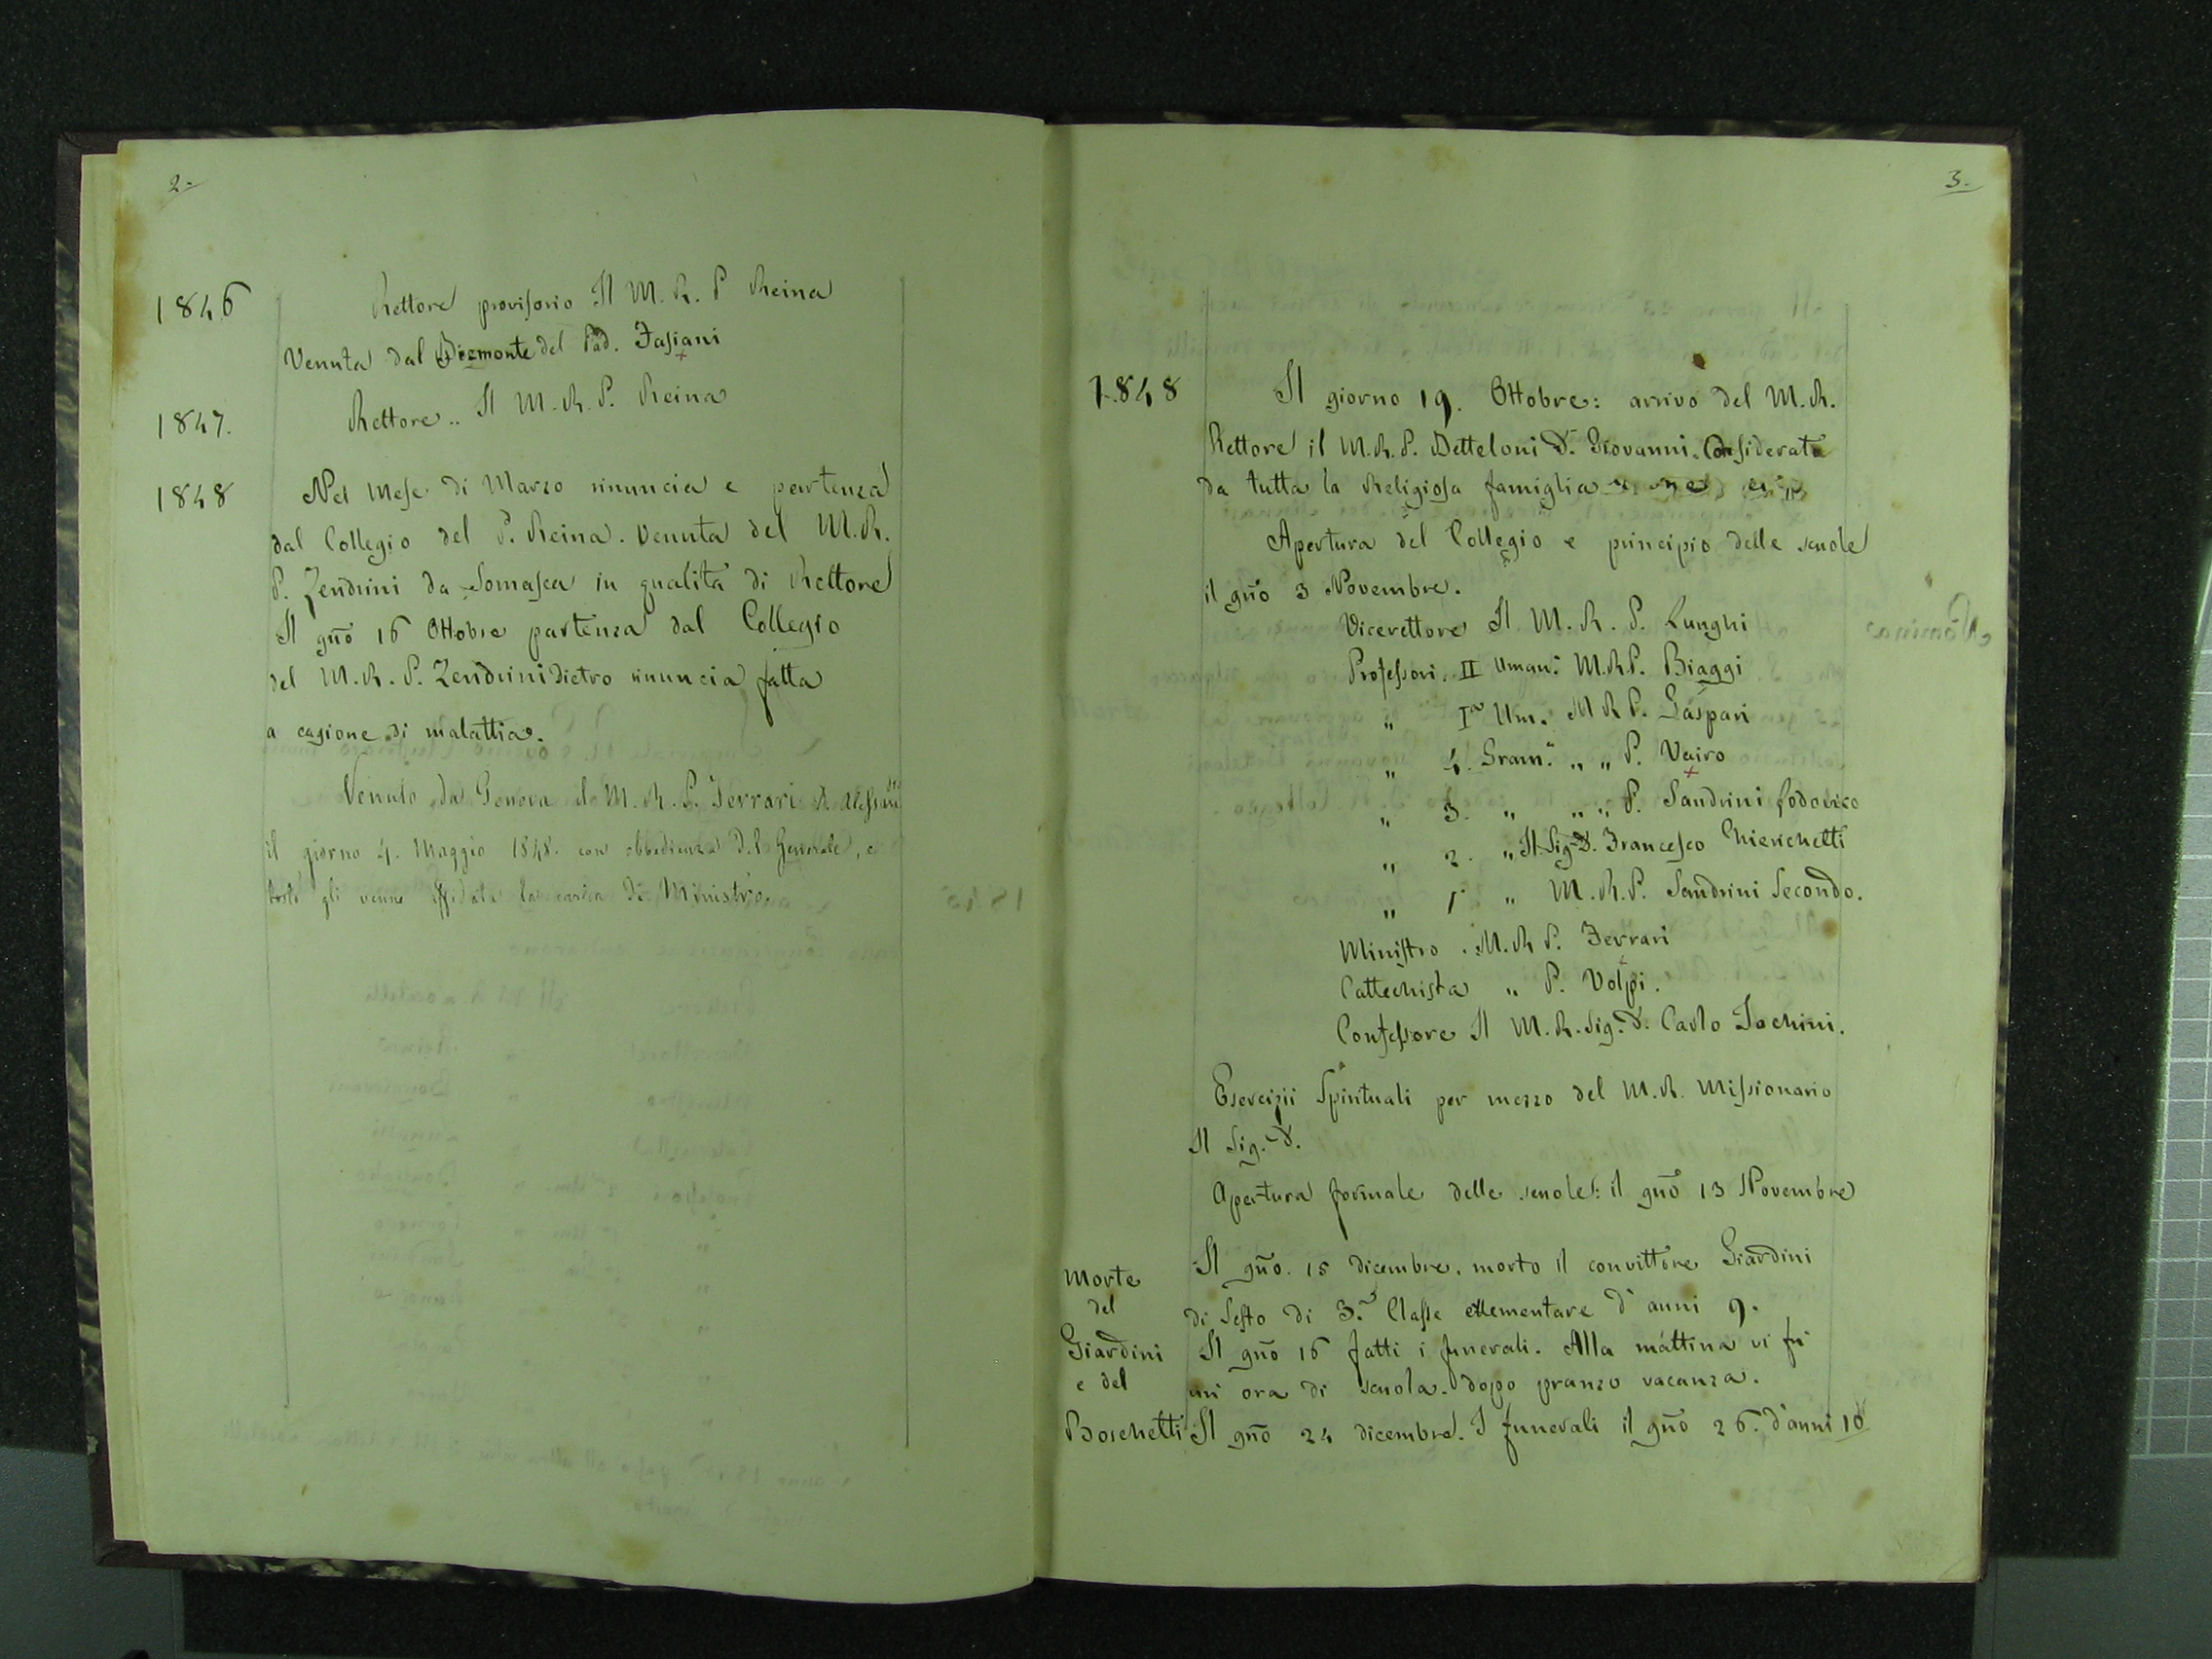 2-
1846 Rettore provisorio Il M. R. P Reina
Venuta dal Piemonte del Pad. Fasiani
1847. Rettore.. Il M. R. P. Reina
1848 Nel Mese di Marzo rinuncia e partenza
dal Collegio del P. Reina. Venuta del M. R.
P. Zendrini da Somasca in qualità di Rettore
Il gño 16 Ottobre partenza dal Collegio
del M. R. P. Zendrini dietro rinuncia fatta
a cagione di malattia.
Venuto da Genova il M. R. P. Ferrari D.
il giorno 4. Maggio 1848. con obbedienza del Generale, e
tosto gli venne affidata la carica di Ministro.
3-
1848 Il giorno 19. Ottobre: arrivo del M. R.
Rettore il M. R. P. Betteloni D. Giovanni. Considerata
da tutta la Religiosa famiglia
Apertura del Collegio e principio delle scuole
il gño 3 Novembre.
Vicerettore Il M. R. P. Lunghi
Professori. II Uman. M. R. P. Biaggi
" Iª Um. M R P. Gaspari
" 4. Gram. " " P. Vairo
" 3. " " " P. Sandrini Lodovico
" 2. " Il Sig. D. Francesco Chierichetti
" 1 " M. R. P. Sandrini Secondo.
Ministro . M. R P. Ferrari
Cattechista " P. Volpi.
Confessore Il M. R. Sig. D. Carlo Jachini.
Esercizii Spirituali per mezzo del M. R. Missionario
Il Sig. D.
Apertura formale delle scuole: il gño 13 Novembre
Morte
del
Giardini
e del
Boschetti
Il gño. 15 dicembre. morto il convittore Giardini
di Sesto di 3.ª Classe ellementare d'anni 9.
Il gño 16 fatti i funerali. Alla mattina vi fu
un'ora di scuola. dopo pranzo vacanza.
Il gño 24 dicembre. I funerali il gño 26. d'anni 10